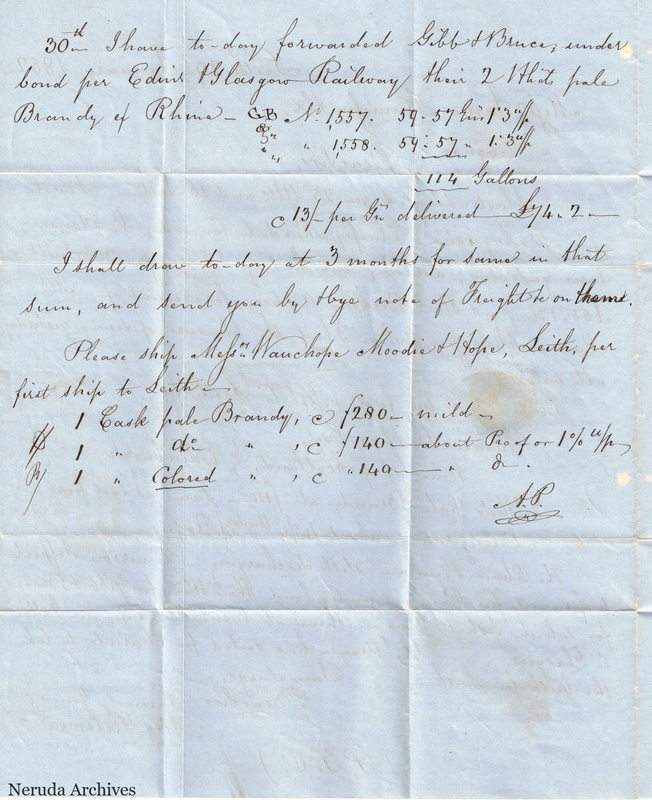 30th I have to-day forwarded Gibb & Bruce, under
bond per Edinr & Glasgow Railway their 2 Hhds pale
Brandy ex Rhine - GB No. 1,557. 59.57 Gns 1.3 u/p
& Do " 1,558. 59.57 " 1.3 u/p
114 Gallons
c 13/- per Gn delivered £74.2 -
I shall draw to-day at 3 months for same in that
sum, and send you by & bye note of Freight &c on them.
Please ship Messrs Wauchope Moodie & Hope, Leith, per
first ship to Leith -
1 Cask pale Brandy, c f280 - mild -
1 " do " , c f140 - about Proof or 1% u/p
1 " Colored " , c " 140 - " do -
A.P.
Neruda Archives